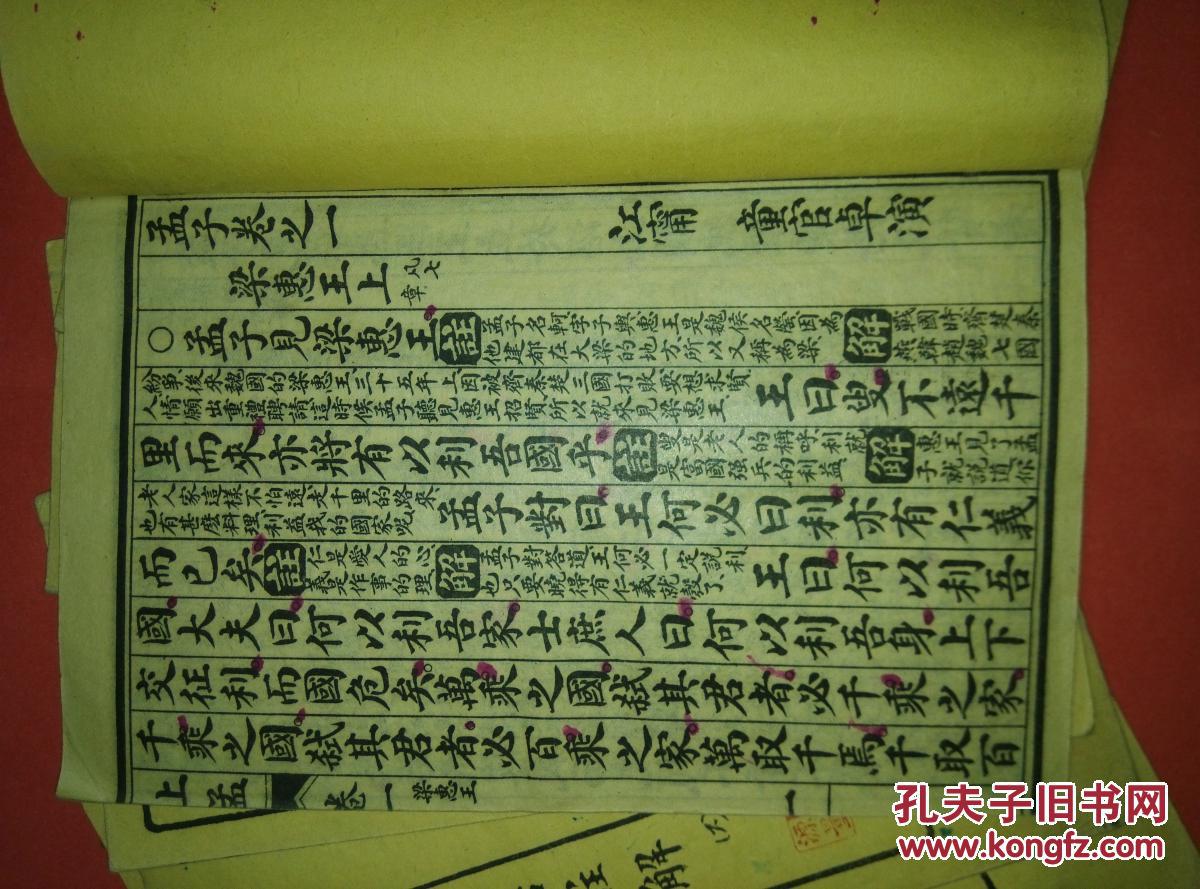 孟子卷之一 江甯 童官卓演
梁惠王上 凡七章
○孟子見梁惠王 註 孟子名軻字子輿惠王是魏侯名罃因為他建都在大梁的地方所以又稱為梁 解 戰國時齊楚秦燕韓趙魏七國
紛爭後來魏國的梁惠王三十五年上因被齊秦楚三國打敗要想求賢人情願出重禮聘請這時候孟子聽見惠王招賢所以就來見梁惠王 王曰叟不遠千
里而來亦將有以利吾國乎 註 叟是老人的稱呼利就是富國強兵的利益 解 惠王見了孟子就説道你
老人家這樣不怕遠走千里的路來也有甚麽料理利益我的國家呢 孟子對曰王何必曰利亦有仁義
而已矣 註 仁是愛人的心義是作事的理 解 孟子對答道王何必一定説利也只要曉得有仁義就彀了 王曰何以利吾
國大夫曰何以利吾家士庶人曰何以利吾身上下
交征利而國危矣萬乘之國弑其君者必千乘之家
千乘之國弑其君者必百乘之家萬取千焉千取百
上孟 卷一 梁惠王 一
解
孔夫子旧书网
www.kongfz.com